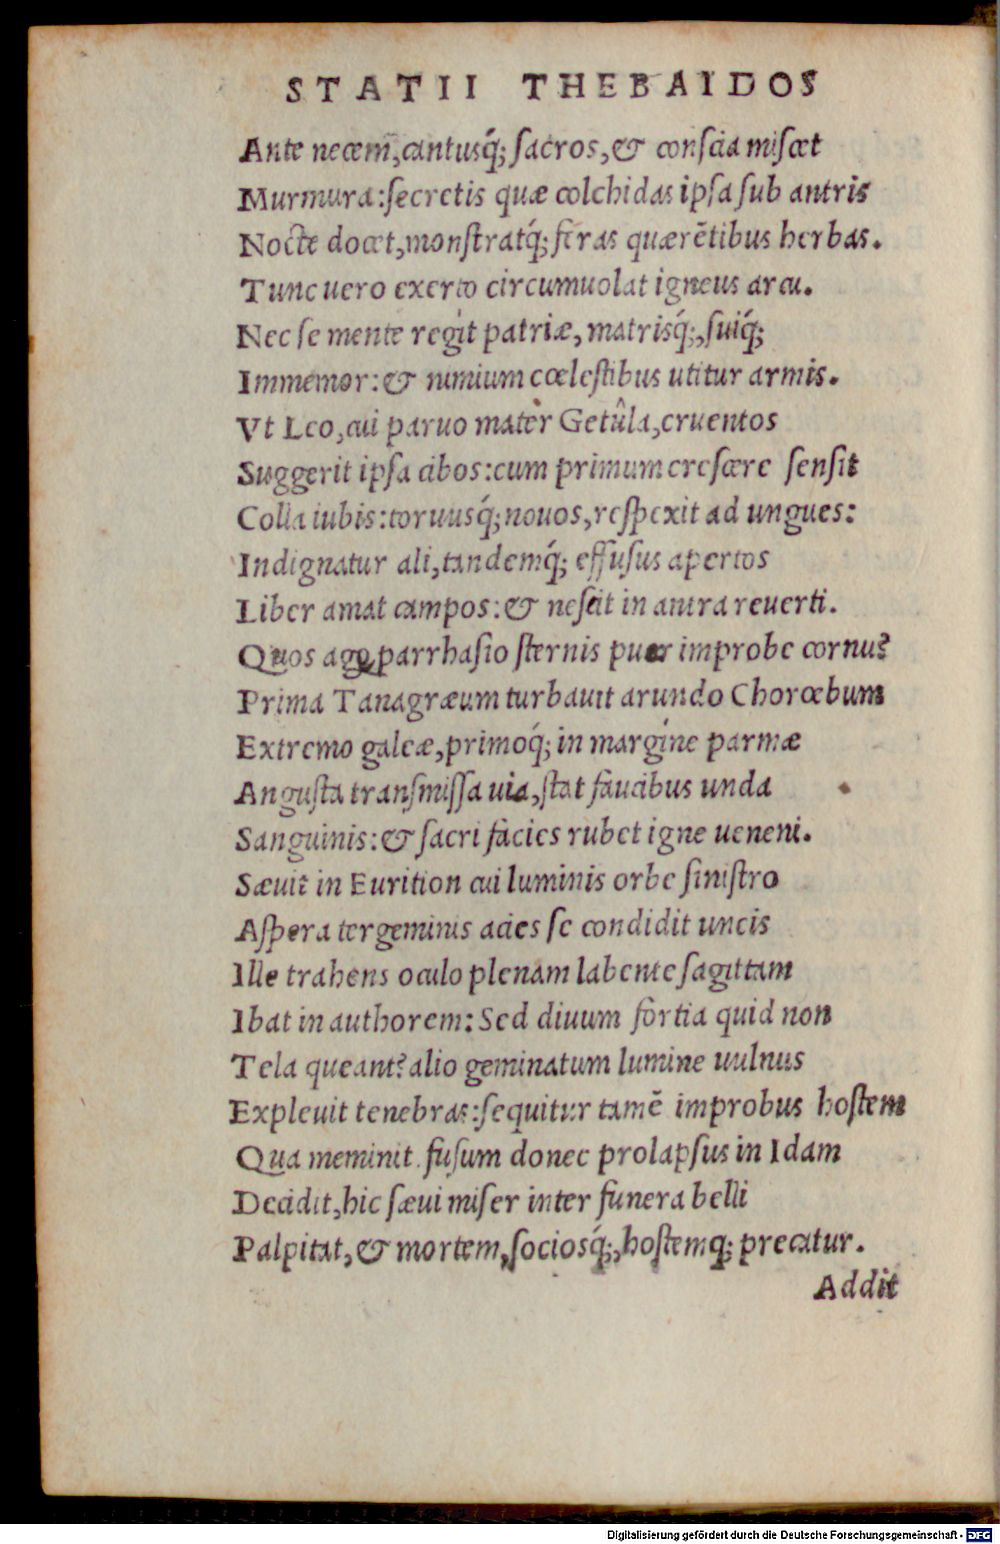 STATII THEBAIDOS
Ante necem, cantusq́; sacros, & conscia miscet
Murmura: secretis quæ colchidas ipsa sub antris
Nocte docet, monstratq́; feras quærẽtibus herbas.
Tunc uero exerto circumuolat igneus arcu.
Nec se mente regit patriæ, matrisq́;, suiq́;
Immemor: & nimium cœlestibus utitur armis.
Vt Leo, cui paruo mater Getûla, cruentos
Suggerit ipsa cibos: cum primum crescere sensit
Colla iubis: toruusq́; nouos, respexit ad ungues:
Indignatur ali, tandemq́; effusus apertos
Liber amat campos: & nescit in antra reuerti.
Quos age parrhasio sternis puer improbe cornu?
Prima Tanagræum turbauit arundo Chorœbum
Extremo galeæ, primoq́; in margine parmæ
Angusta transmissa uia, stat faucibus unda
Sanguinis: & sacri facies rubet igne ueneni.
Sæuit in Eurition cui luminis orbe sinistro
Aspera tergeminis acies se condidit uncis
Ille trahens oculo plenam labente sagittam
Ibat in authorem: Sed diuum fortia quid non
Tela queant? alio geminatum lumine uulnus
Expleuit tenebras: sequitur tamẽ improbus hostem
Qua meminit. fusum donec prolapsus in Idam
Decidit, hic sæui miser inter funera belli
Palpitat, & mortem, sociosq́;, hostemq; precatur.
Addit
Digitalisierung gefördert durch die Deutsche Forschungsgemeinschaft - DFG